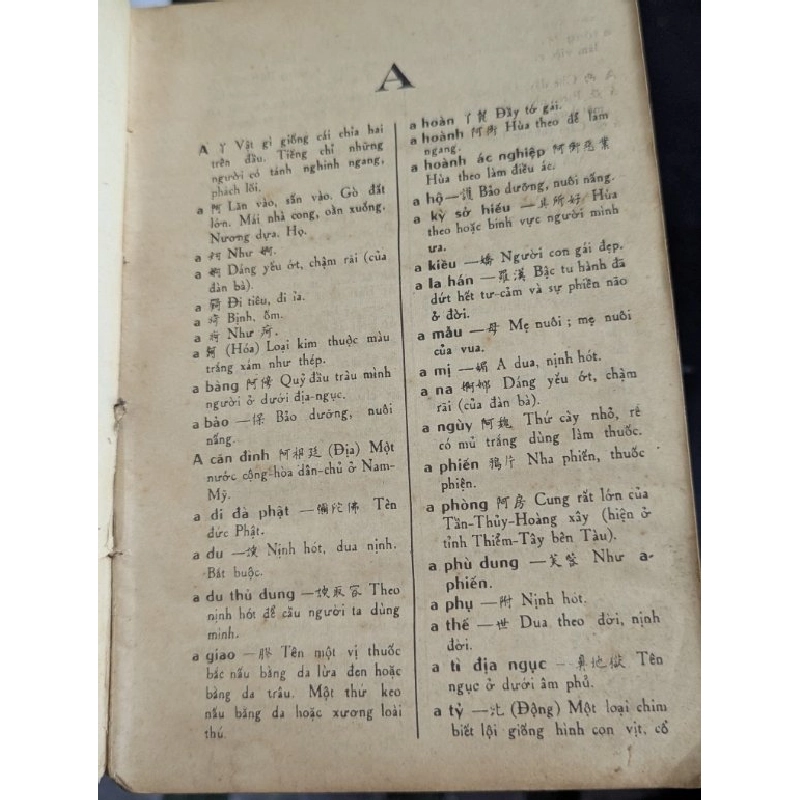 A
A 丫 Vật gì giống cái chìa hai
trên đầu. Tiếng chỉ những
người có tánh nghinh ngang,
phách lối.
a 阿 Lẫn vào, sấn vào. Gò đất
lớn. Mái nhà cong, oằn xuống.
Nương dựa. Họ.
a 柯 Như 婀.
a 婀 Dáng yểu ớt, chậm rãi (của
đàn bà).
a Đi tiêu, đi ỉa.
a 疴 Bịnh, ốm.
a 痾 Như 疴.
a 錒 (Hóa) Loại kim thuộc màu
trắng xám như thép.
a bàng 阿傍 Quỷ đầu trâu mình
người ở dưới địa-ngục.
a bảo —保 Bảo dưỡng, nuôi
nấng.
A căn đình 阿根廷 (Địa) Một
nước cộng-hòa dân-chủ ở Nam-
Mỹ.
a di đà phật —彌陀佛 Tên
đức Phật.
a du —諛 Nịnh hót, dua nịnh.
Bắt buộc.
a du thủ dung —諛取容 Theo
nịnh hót để cầu người ta dùng
mình.
a giao —膠 Tên một vị thuốc
bắc nấu bằng da lừa đen hoặc
bằng da trâu. Một thứ keo
nấu bằng da hoặc xương loài
thú.
a hoàn 丫鬟 Đầy tớ gái.
a hoành 阿衡 Hùa theo để làm
ngang.
a hoành ác nghiệp 阿衡惡業
Hùa theo làm điều ác.
a hộ —護 Bảo dưỡng, nuôi nấng.
a kỳ sở hiếu —其所好 Hùa
theo hoặc binh vực người mình
ưa.
a kiều —嬌 Người con gái đẹp.
a la hán —羅漢 Bậc tu hành đã
dứt hết tư-cảm và sự phiền não
ở đời.
a mẫu —母 Mẹ nuôi ; mẹ nuôi
của vua.
a mị —媚 A dua, nịnh hót.
a na 婀娜 Dáng yểu ớt, chậm
rãi (của đàn bà).
a ngùy 阿魏 Thứ cây nhỏ, rễ
có mủ trắng dùng làm thuốc.
a phiến 鴉片 Nha phiến, thuốc
phiện.
a phòng 阿房 Cung rất lớn của
Tần-Thủy-Hoàng xây (hiện ở
tỉnh Thiểm-Tây bên Tàu).
a phù dung —芙蓉 Như a-
phiến.
a phụ —附 Nịnh hót.
a thế —世 Dua theo đời, nịnh
đời.
a tì địa ngục —鼻地獄 Tên
ngục ở dưới âm phủ.
a tỷ (Động) Một loại chim
biết lội giống hình con vịt, cổ